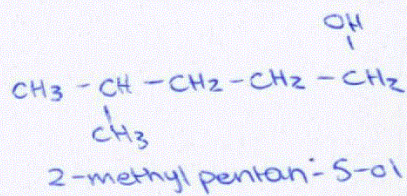 OH
CH3 - CH - CH2 - CH2 - CH2
CH3
2-methyl pentan-5-ol